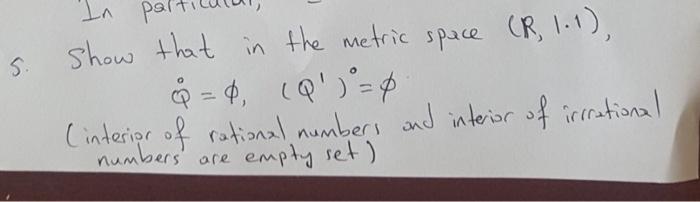 In particular,
5. Show that in the metric space (R, |.|),
Q̊ = ϕ, (Q')° = ϕ
(interior of rational numbers and interior of irrational
numbers are empty set)